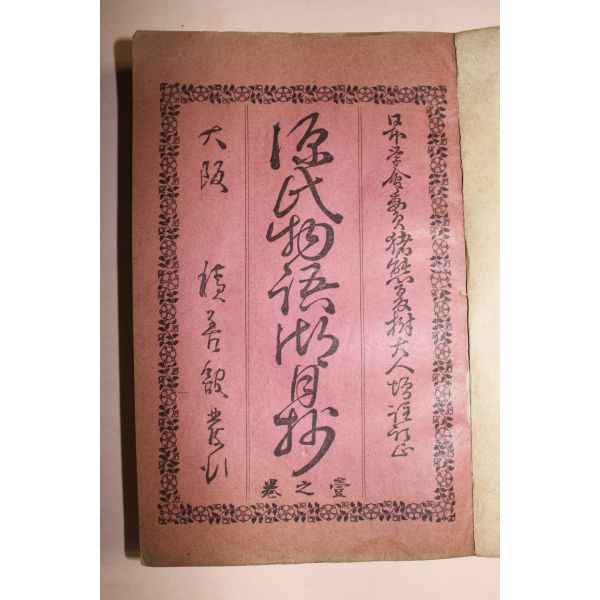 皇典学会委員猪熊夏樹大人増註訂正
源氏物語湖月抄
壹之卷
大阪 積善館發兌